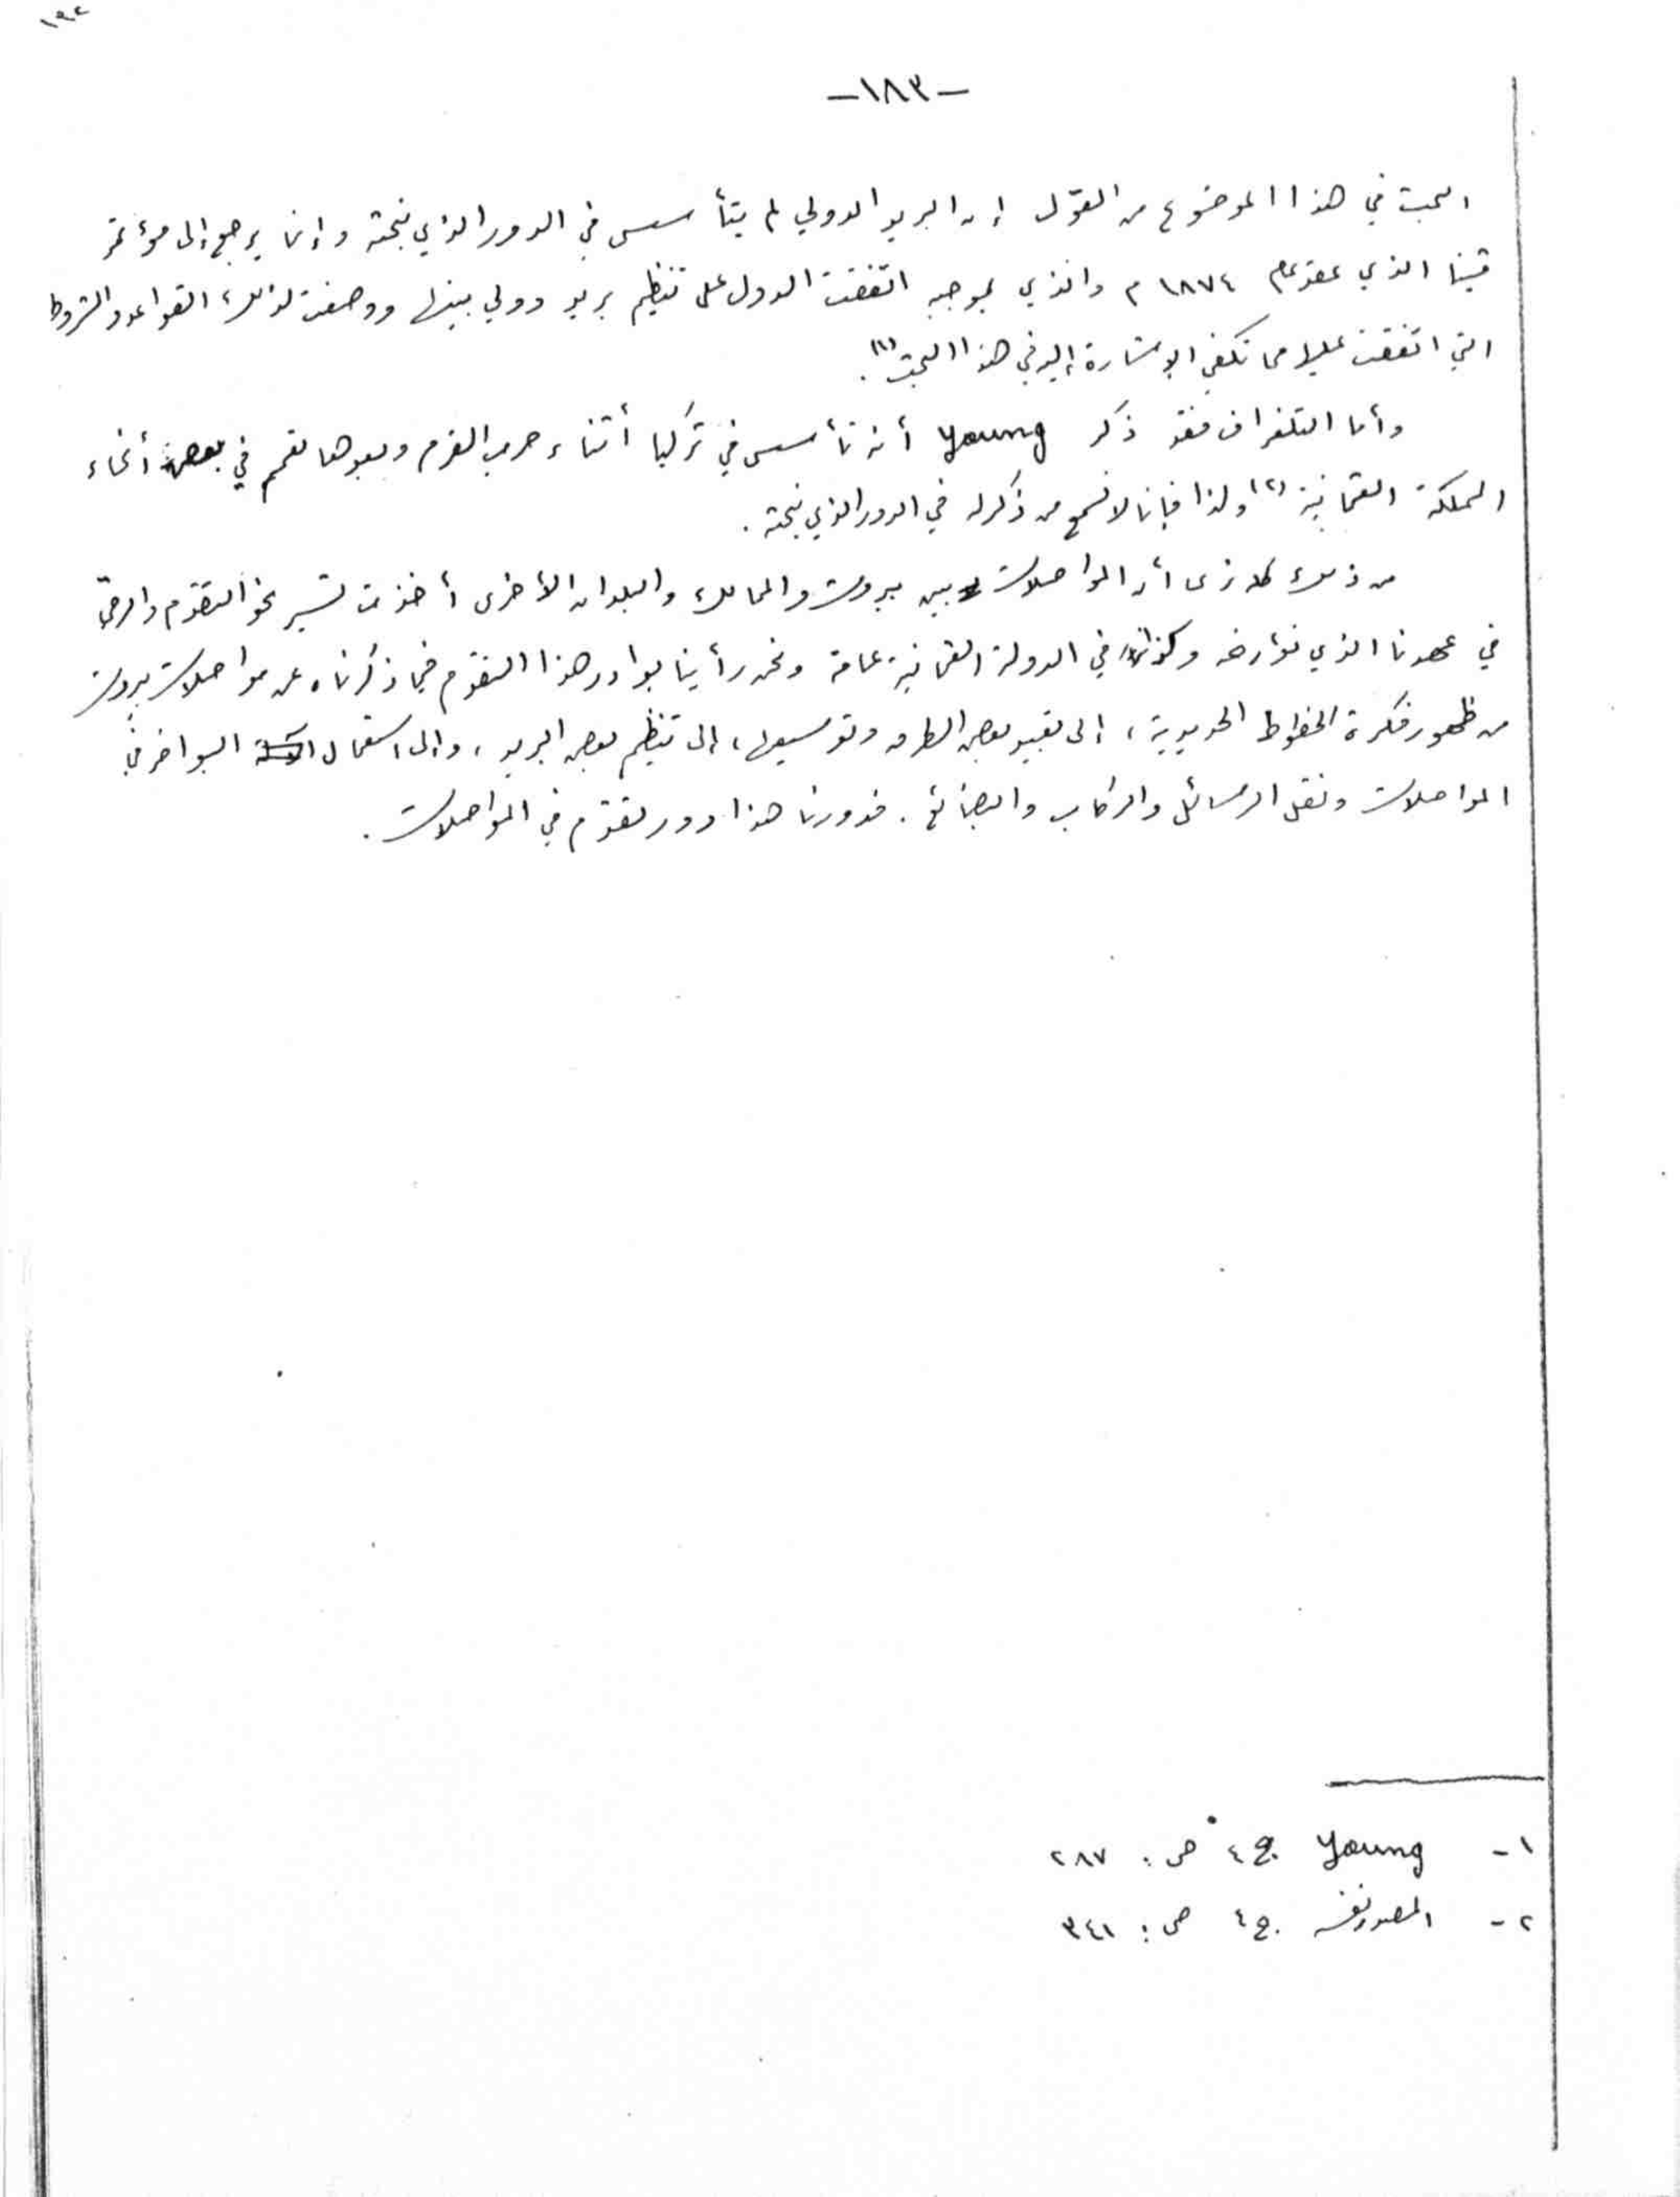 ١٩٢
-١٨٣-
البحث في هذا الموضوع من القول إن البريد الدولي لم يتأسس في الدور الذي نبحثه وإنما يرجع إلى مؤتمر
فينا الذي عقد عام ١٨٧٤ م والذي بموجبه اتفقت الدول على تنظيم بريد دولي بينها ووضعت لذلك القواعد والشروط
التي اتفقت عليها مما تكفي الإشارة إليه في هذا البحث(١).
وأما التلغراف فقد ذكر Young أنه تأسس في تركيا أثناء حرب القرم وبعدها تعمم في بعض أنحاء
المملكة العثمانية(٢) ولذا فإننا لا نسمع من ذكر له في الدور الذي نبحثه.
من ذلك كله نرى أن المواصلات بين بيروت والممالك والبلدان الأخرى أخذت تسير نحو التقدم والرقي
في عهدنا الذي نؤرخه وكذلك في الدولة العثمانية عامة ونحن رأينا بوادر هذا التقدم فيما ذكرناه عن مواصلات بيروت
من ظهور فكرة الخطوط الحديدية، إلى تعبيد بعض الطرق وتوسيعها، إلى تنظيم بعض البريد، وإلى استعمال البواخر في
المواصلات ونقل الرسائل والركاب والبضائع. فدورنا هذا دور تقدم في المواصلات.
١- Young ج ٤ ص: ٢٨٧
٢- المصدر نفسه ج ٤ ص: ٣٤١